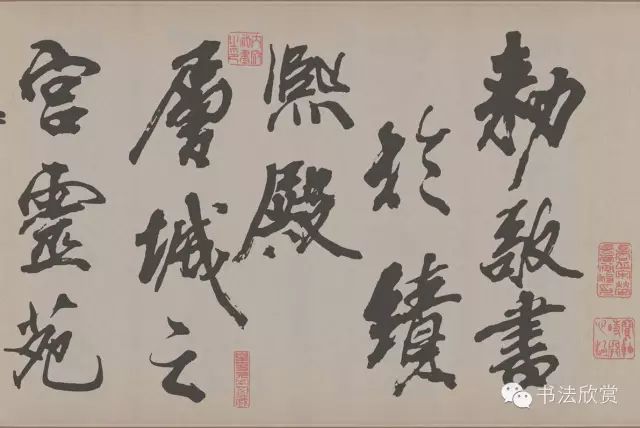 勅敬書
於績
熙殿
層城之
宫靈苑
书法欣赏